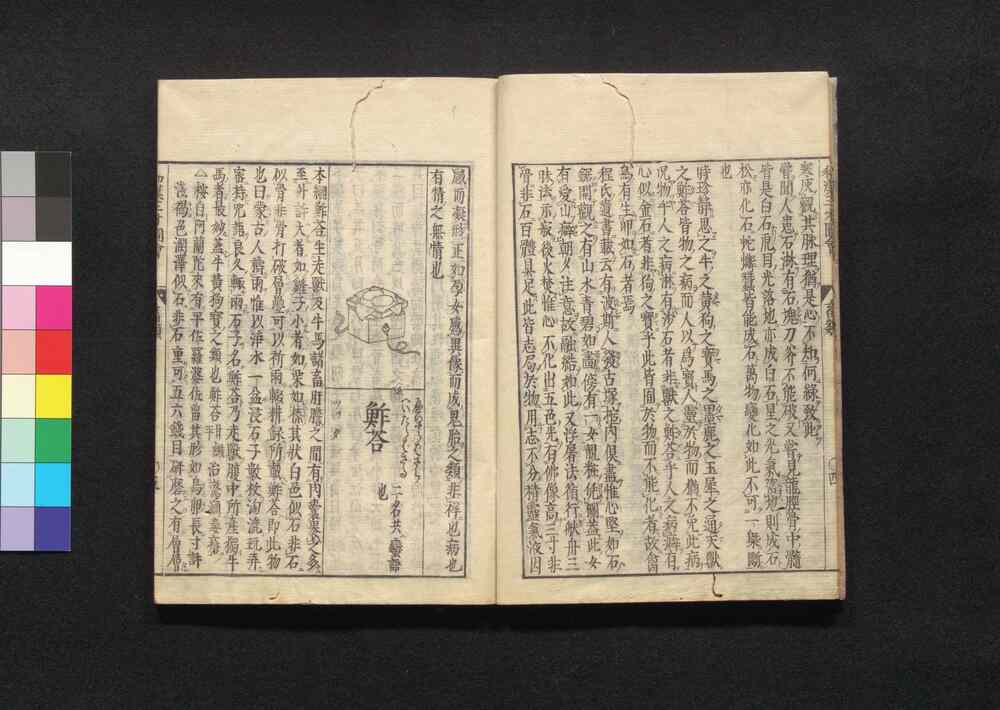 塞成覩其脉理猶是心不知何緣致此
嘗聞人患石淋有石塊刀斧不能破又嘗見龍脛骨中髓
皆是白石虎目光落地亦成白石星之光氣落地則成石
松亦化石蛇蟹蠶皆能成石萬物變化如此不可一槩斷
也
時珍靜思之牛之黃狗之寶馬之墨鹿之玉犀之通天獸
之鮓荅皆物之病而人以爲寶人靈於物而猶不免此病
况物乎人之病淋有沙石者非獸之鮓荅乎人之病癖有
心似金石者非狗之寶乎此皆囿於物而不能化者故禽
鳥有生卵如石者焉
程氏遺書載云有波斯人發古塚棺內俱盡惟心堅如石
鋸開觀之有山水青碧如畫傍有一女靚粧凭欄蓋此女
有愛山癖朝夕注意故融結如此又浮屠法循行般舟三
昧法示寂後火焚惟心不化出五色光有佛像高三寸非
骨非石百體具足此皆志局於物用志不分精靈氣液因
感而凝形正如孕女感異像而成鬼胎之類非祥也病也
有情之無情也
鮓荅
二名共蠻語
也
本綱鮓荅生走獸及牛馬諸畜肝膽之間有肉囊裹之多
至升許大者如雞子小者如栗如榛其狀白色似石非石
似骨非骨打破層疊可以祈雨輟耕錄所載鮓荅即此物
也曰蒙古人禱雨惟以淨水一盆浸石子數枚淘漉玩弄
密持咒語良久輒雨石子名鮓荅乃走獸腹中所產獨牛
馬者最妙蓋牛黃狗寶之類也鮓荅甘鹹平治驚癇毒瘡
△按自阿蘭陀來有平佐羅婆佐留其形如鳥卵長寸許
淺褐色潤澤似石非石重可五六錢目研磨之有層層